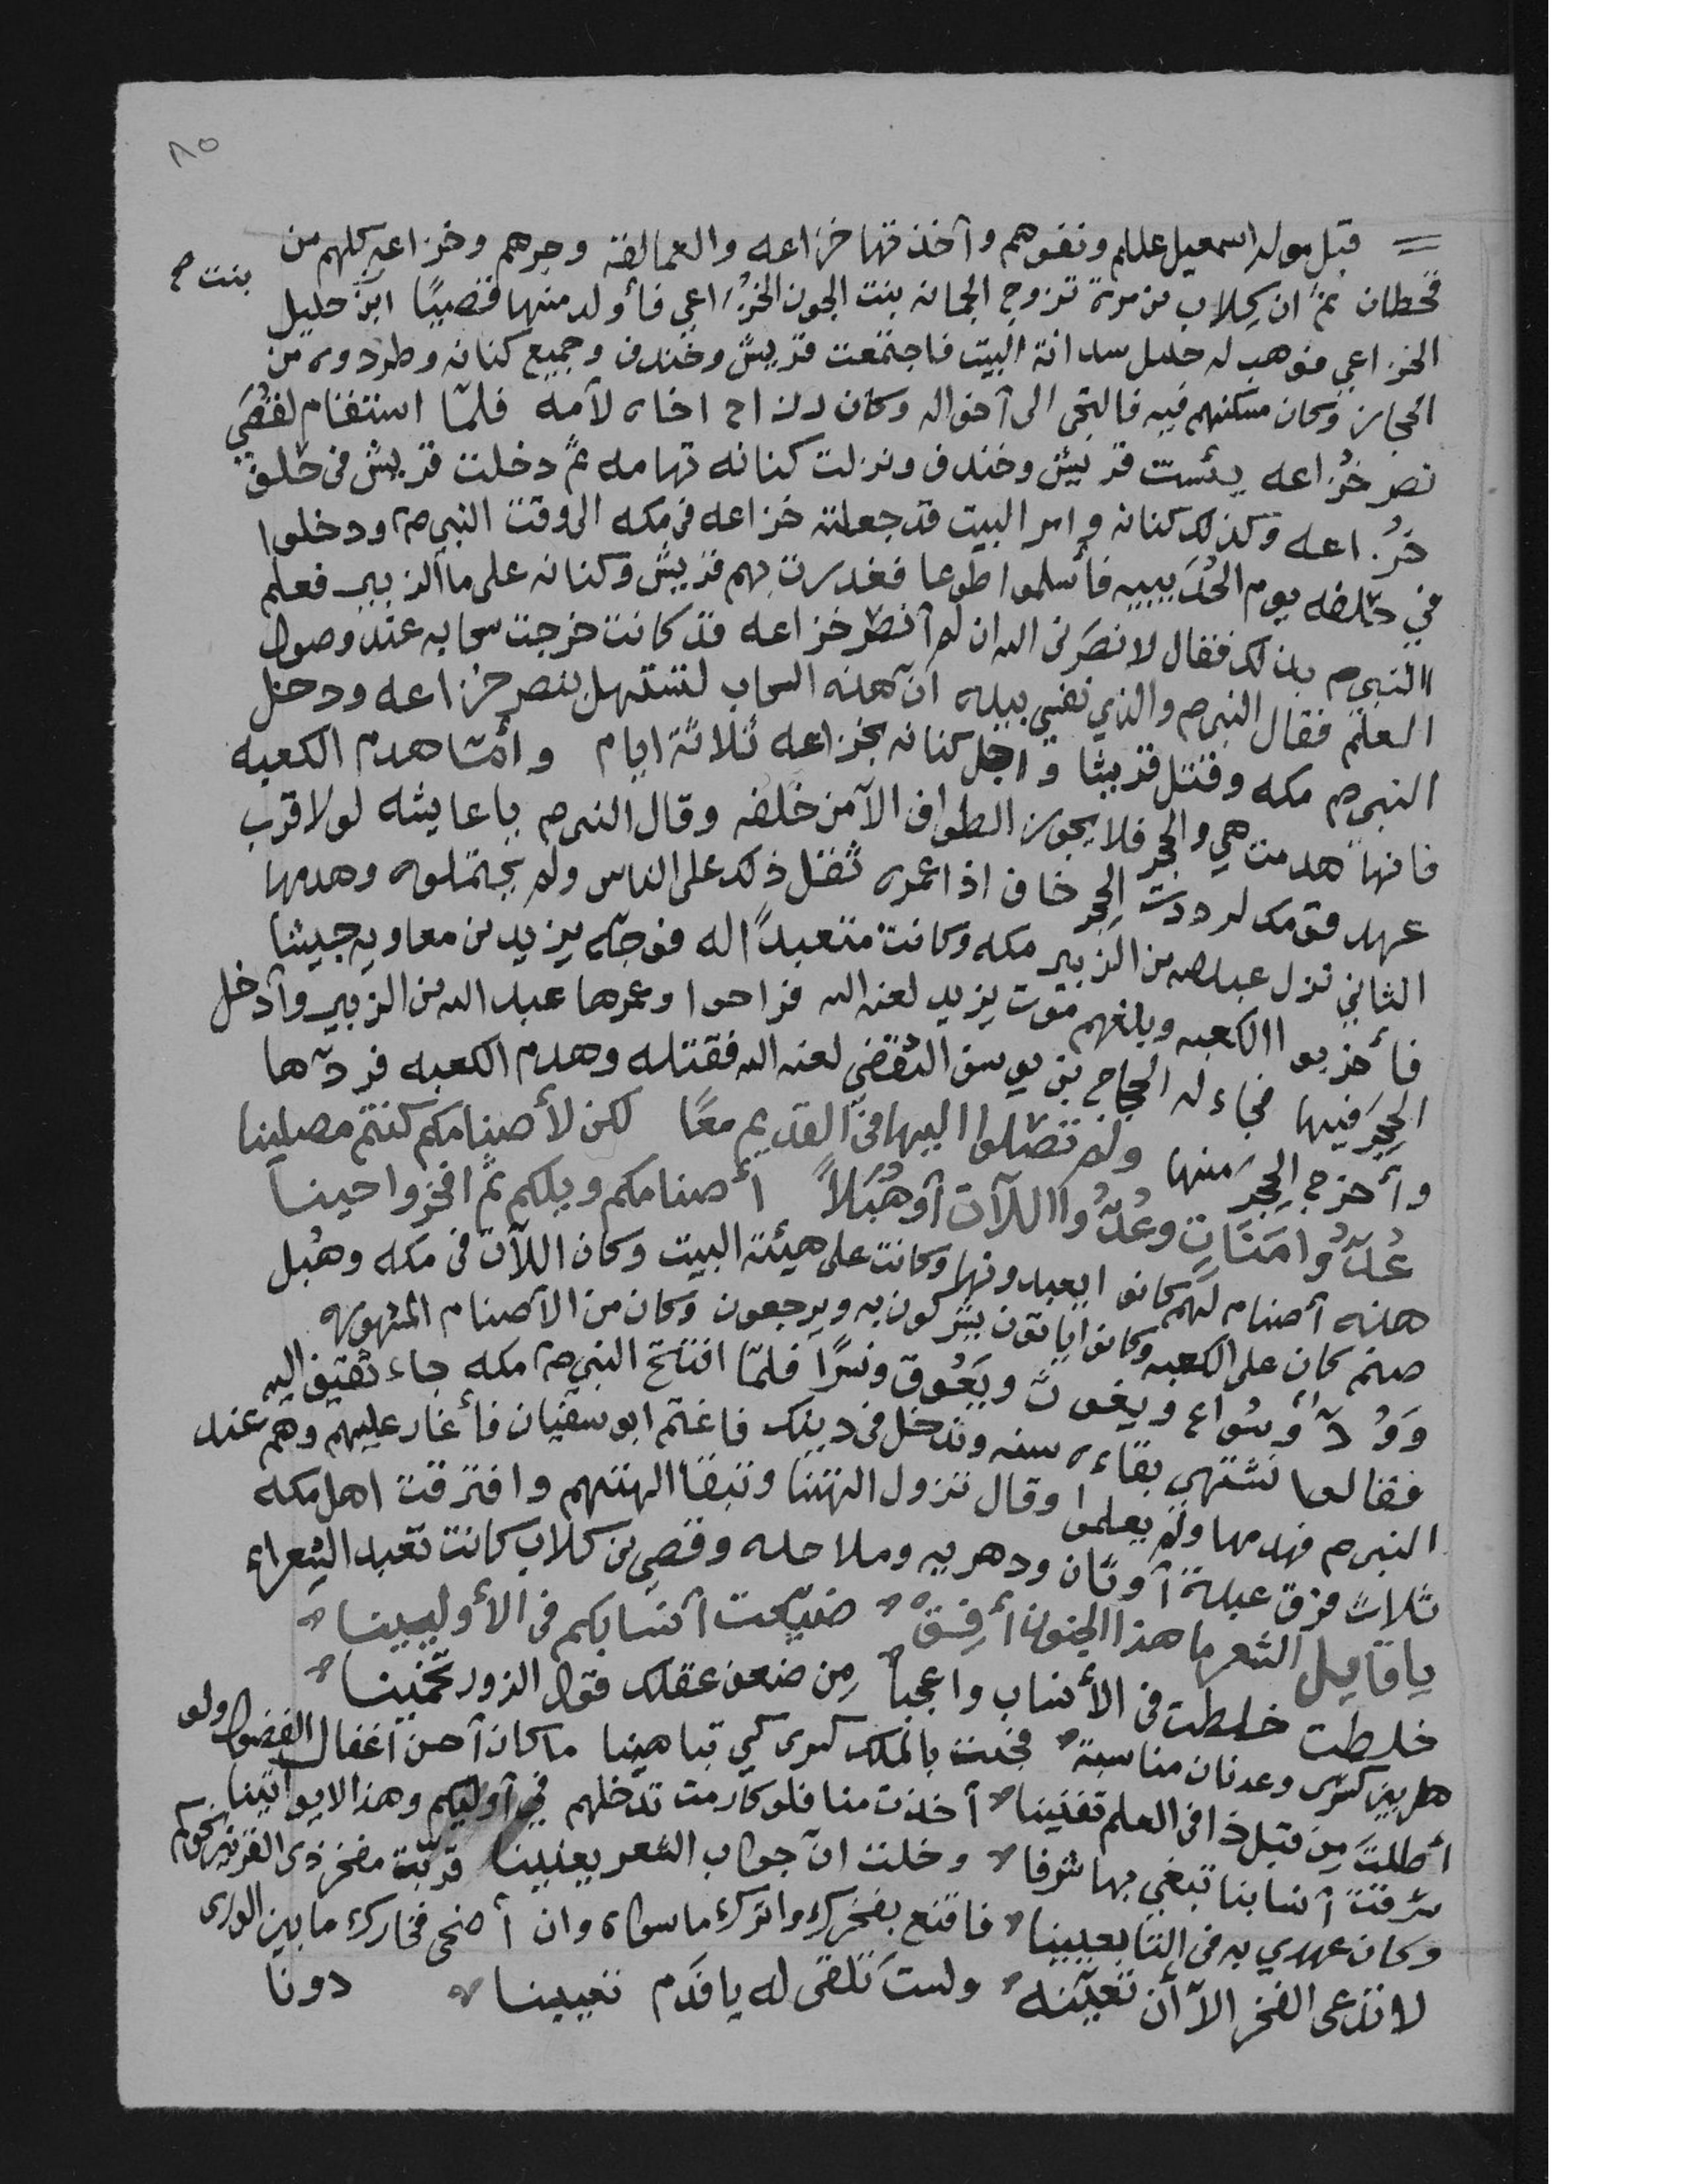 ٨٥
قبل مولد اسمعيل علللم ونفوهم وآخذتها خزاعه والعمالقة وجرهم وخزاعه كلهم من
قحطان ثمّ ان كلاب بن مرة تزوج الجمانه بنت الجون الخُزاعي فأولد منها قصيًا ابن حليل
بنت
الخزاعي فوهب له حليل سدانة البيت فاجتمعت قريش وخندف وجميع كنانه وطردوه من
الحجاز وكان مسكنهم فيه فالتجى الى آخواله وكان رزاح اخاه لآمه فلمّا استقام لقصَي
نصر خُزاعه يئست قريش وخندف ونزلت كنانه تهامه ثمّ دخلت قريش فى حلف
خُزاعه وكذلك كنانه وامر البيت قد جعلته خزاعه فى مكه الى وقت النبي صم ودخلوا
في حلفه يوم الحُدَيبيه فأسلموا طوعا فغدرت بهم قريش وكنانه على ما الزبير فعلم
النبي صم بذلك فقال لا نصَرنى الله ان لم آنصر خزاعه قد كانت خرجت سحابه عند وصول
العلم فقال النبي صم والذي نفسي بيده آنّ هذه السحاب لتستهل بنصر خزاعه ودخل
النبي صم مكه وقتل قريشا و اجل كنانه بخزاعه ثلاثة ايام وأمّا هدم الكعبه
فانها هدمت هي والحجر فلا يجوز الطواف الآ من خلفه وقال النبي صم ياعايشه لولا قرب
عهد قومك لرددت الحِجر خاف اذا عمره ثقل ذلك على الناس ولم يحتملوه وهدمها
الثاني نزل عبدلله بن الزبير مكه وكانت متعبدًا له فوجّه يزيد بن معاويه جيشا
فأخربوا الكعبه وبلغهم موت يزيد لعنه الله فراحوا وعمرها عبد الله بن الزبير وآدخل
الحِجَر فيها فجاء له الحجاج بن يوسف الثقفي لعنه الله فقتله وهدم الكعبه فردّها
وأخرج الحِجَر منها ولم تصلوا اليها فى القديم معًا لكن لأصنامكم كنتم مصلينا
عُدّوا مَنَاتِ وعُدّوا اللآت آو هُبَلاً أصنامكم ويلكم ثمّ افخروا حينا
هذه آصنام لهم كانوا يعبدونها وكانت على هيئة البيت وكان اللآت فى مكه وهُبل
صنم كان على الكعبه وكانوا ياتون يشركون به ويرجعون وكان من الآصنام المشهوره
وَوُدّ وسُواع ويغوث ويَعُوق ونسرًا فلمّا افتتح النبي صم مكه جاء ثقيف اليه
فقالوا نشتهي بقاءه سنه وندخل فى دينك فاغتم ابو سفيان فأغار عليهم وهم عند
النبي صم فهدمها ولم يعلموا وقال تزول الهتنا وتبقا الهتهم وافترقت اهل مكه
ثلاث فرق عبدة آوثان ودهريه وملاحده وقصي بن كلاب كانت تعبد الشعراء
ياقايل الشعر ما هذا الجنون أَفِقْ ضيّعت آنسابكم فى الأوليينا
خلطت خلطت فى الأنساب واعجبا مِن ضعف عقلك قول الزور تخمينا
هل بين كسرى وعدنان مناسبة فجئت بالملك كسرى كي تباهينا ما كان آحسن آغفال الفضول ولو
أطلتَ مِن قبل ذا فى العلم تفنينا آخذت منا فلو كارمت تدخلهم في آوليكم وهذا الايواتينا
سرقت آنسابنا تبغي بها شرفا وخلت انّ جواب الشعر يعيينا قربّت مفخر ذى القرنين نحوكم
وكان عهدي به فى التابعيينا فاقنع بفخرك واترك ما سواه وان أضحى فخارك ما بين الورى
دونا
لا تدعى الفخر الآ أن تعيّنه ولستَ تلقى له يافَدَم تعيينا